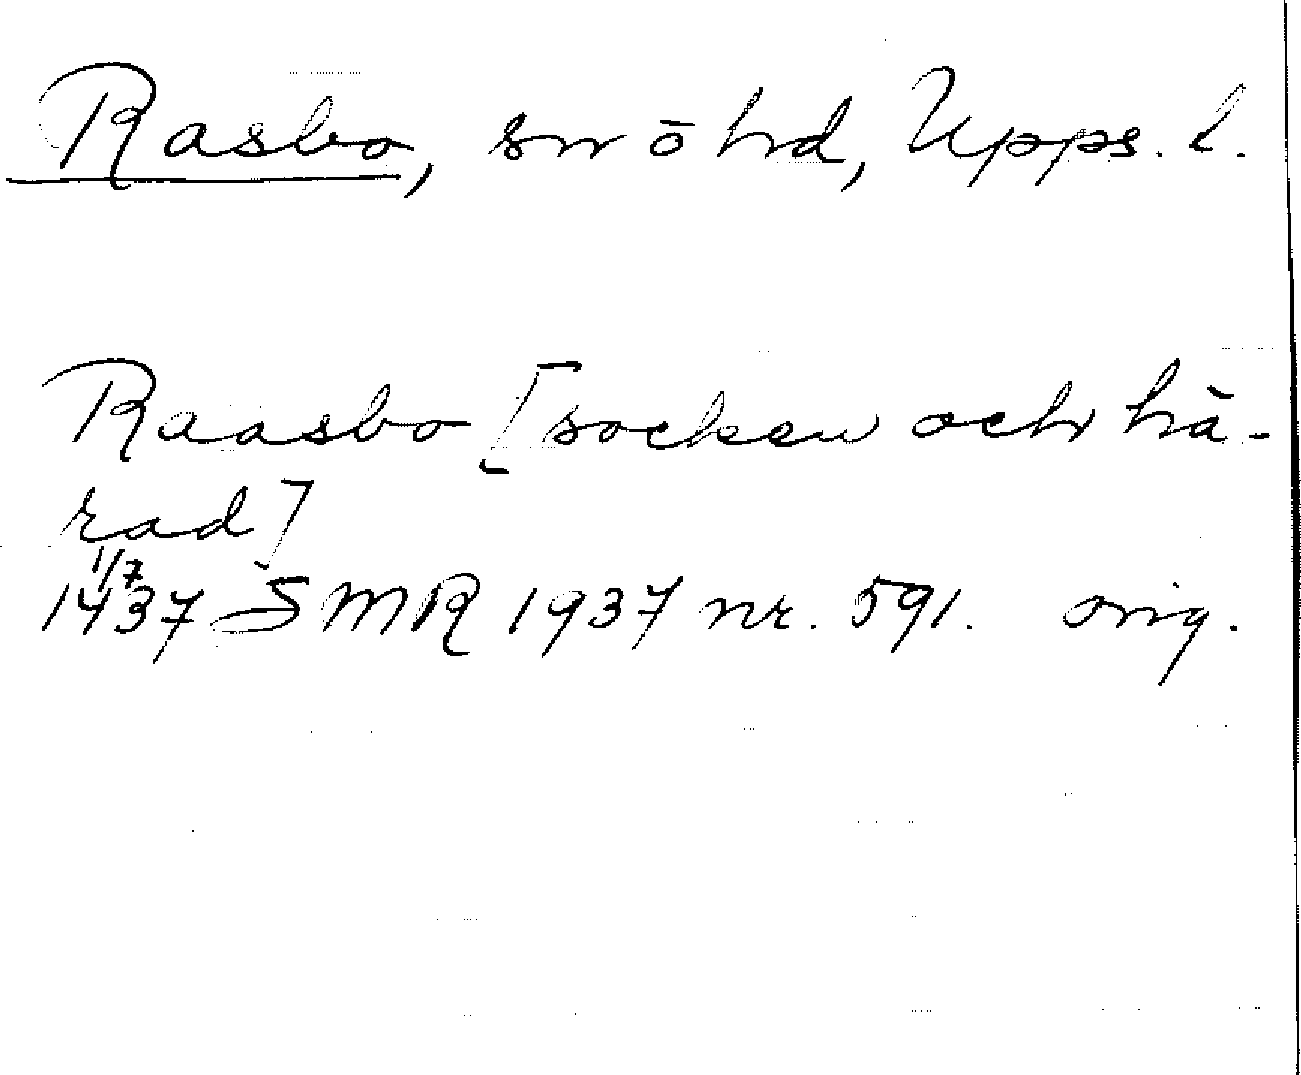 Rasbo, sn ō hd, Upps. l.
Raasbo [socken och hä-
rad]
1/7
1437 SMR 1937 nr. 591. orig.